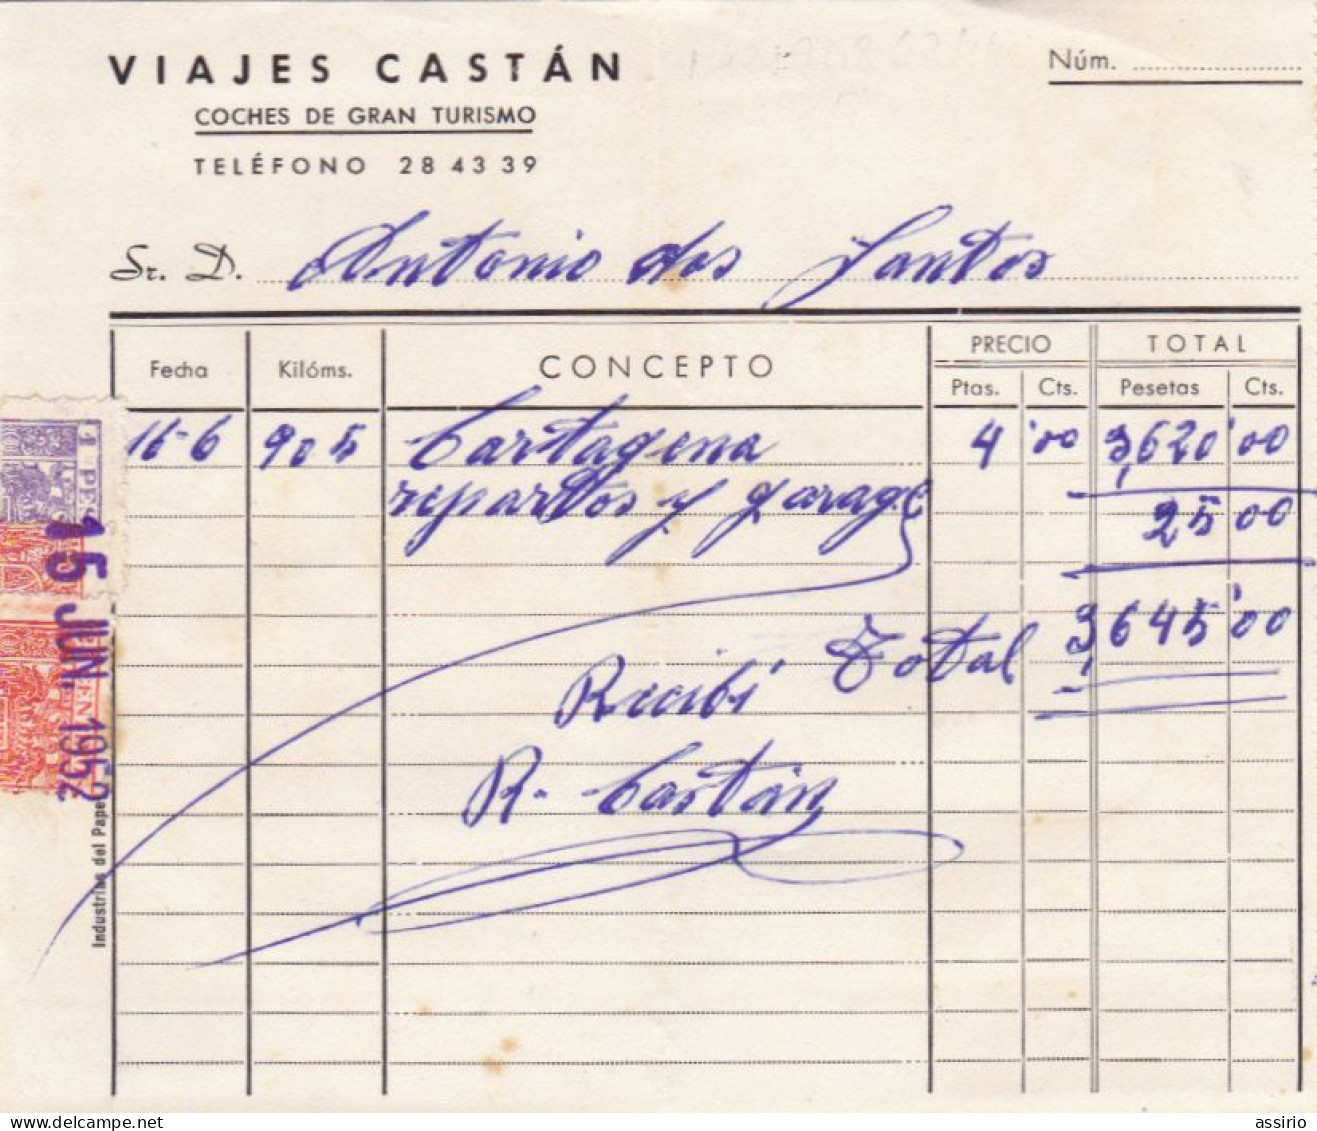 VIAJES CASTÁN
COCHES DE GRAN TURISMO
TELÉFONO 28 43 39
Núm.
Sr. D. Antonio dos Santos
Fecha Kilóms. CONCEPTO PRECIO TOTAL
Ptas. Cts. Pesetas Cts.
905 Cartagena 4 '00 3,620'00
repartos y garage 25 00
Total 3,645'00
Recibí
R. Castán
1 PES
15 JUN. 1952
Industrias del Pape
delcampe.net
assirio